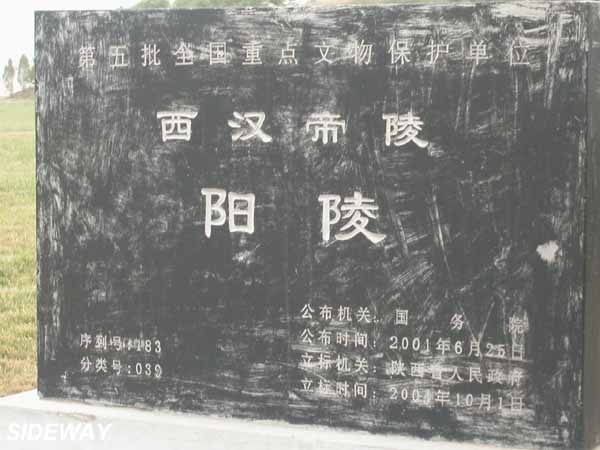 第五批全国重点文物保护单位
西汉帝陵
阳陵
公布机关:国务院
公布时间:2001年6月25日
立标机关:陕西省人民政府
立标时间:2004年10月1日
序列号:183
分类号:039
SIDEWAY